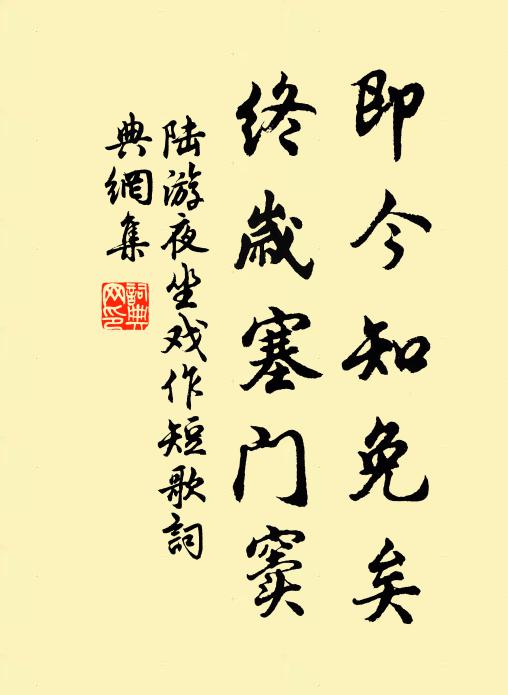 即今知免矣
终岁塞门窦
陆游夜坐戏作短歌詞
典網集
詞典網印